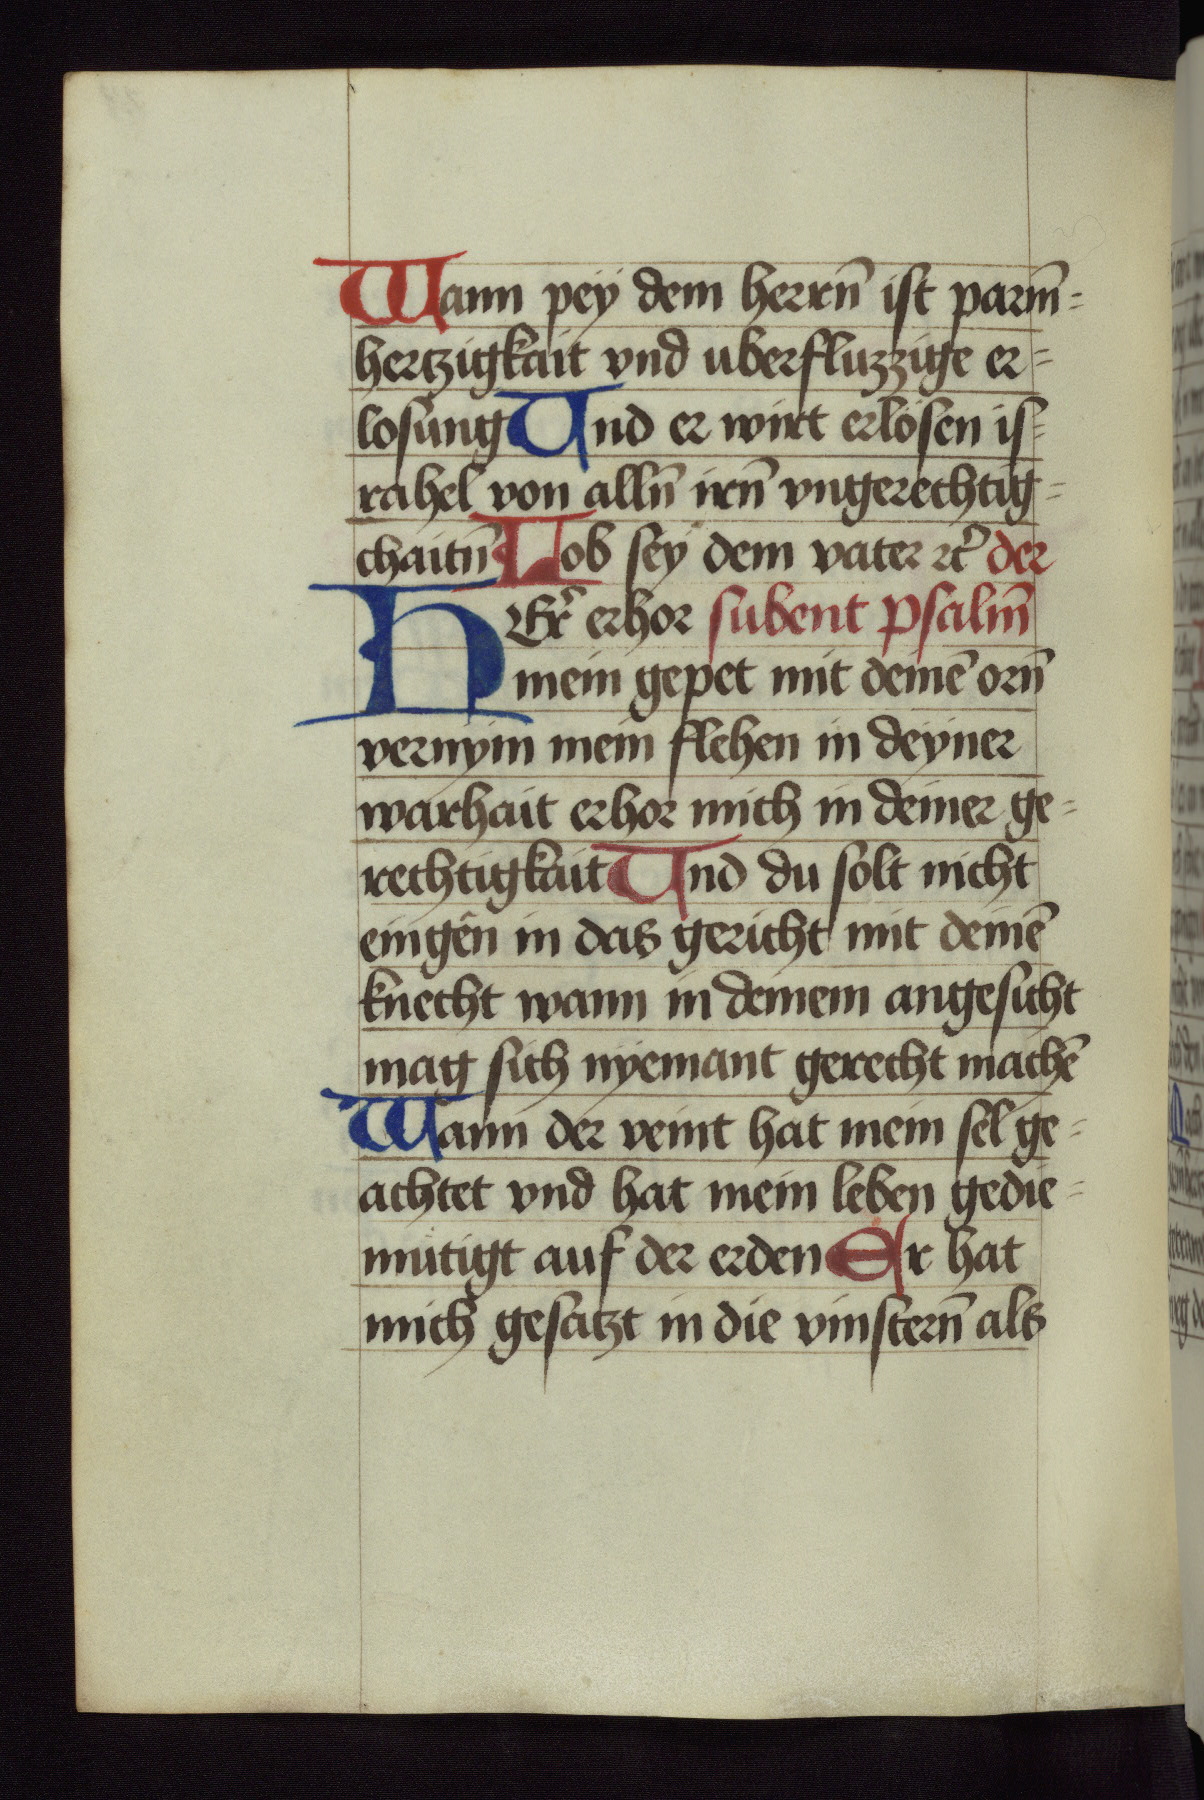 Wann pey dem herrn̄ ist parm̄-
hertzigkait vnd uberfluzzige er-
losung Und er wirt erlösen is-
rahel von alln̄ irn̄ vngerechtig-
chaitn̄ Lob sey dem vater rc̄ der
HEr̄ erhor subent psalm̄
mein gepet mit deinē orn̄
vernym mein flehen in deyner
warhait erhor mich in deiner ge-
rechtigkait Und du solt nicht
eingên in das gericht mit deinē
knecht wann in deinem angesicht
mag sich nyemant gerecht machē
Wann der veint hat mein sel ge-
achtet vnd hat mein leben gedie-
mütigt auf der erden Er hat
mich gesatzt in die vinstern̄ als